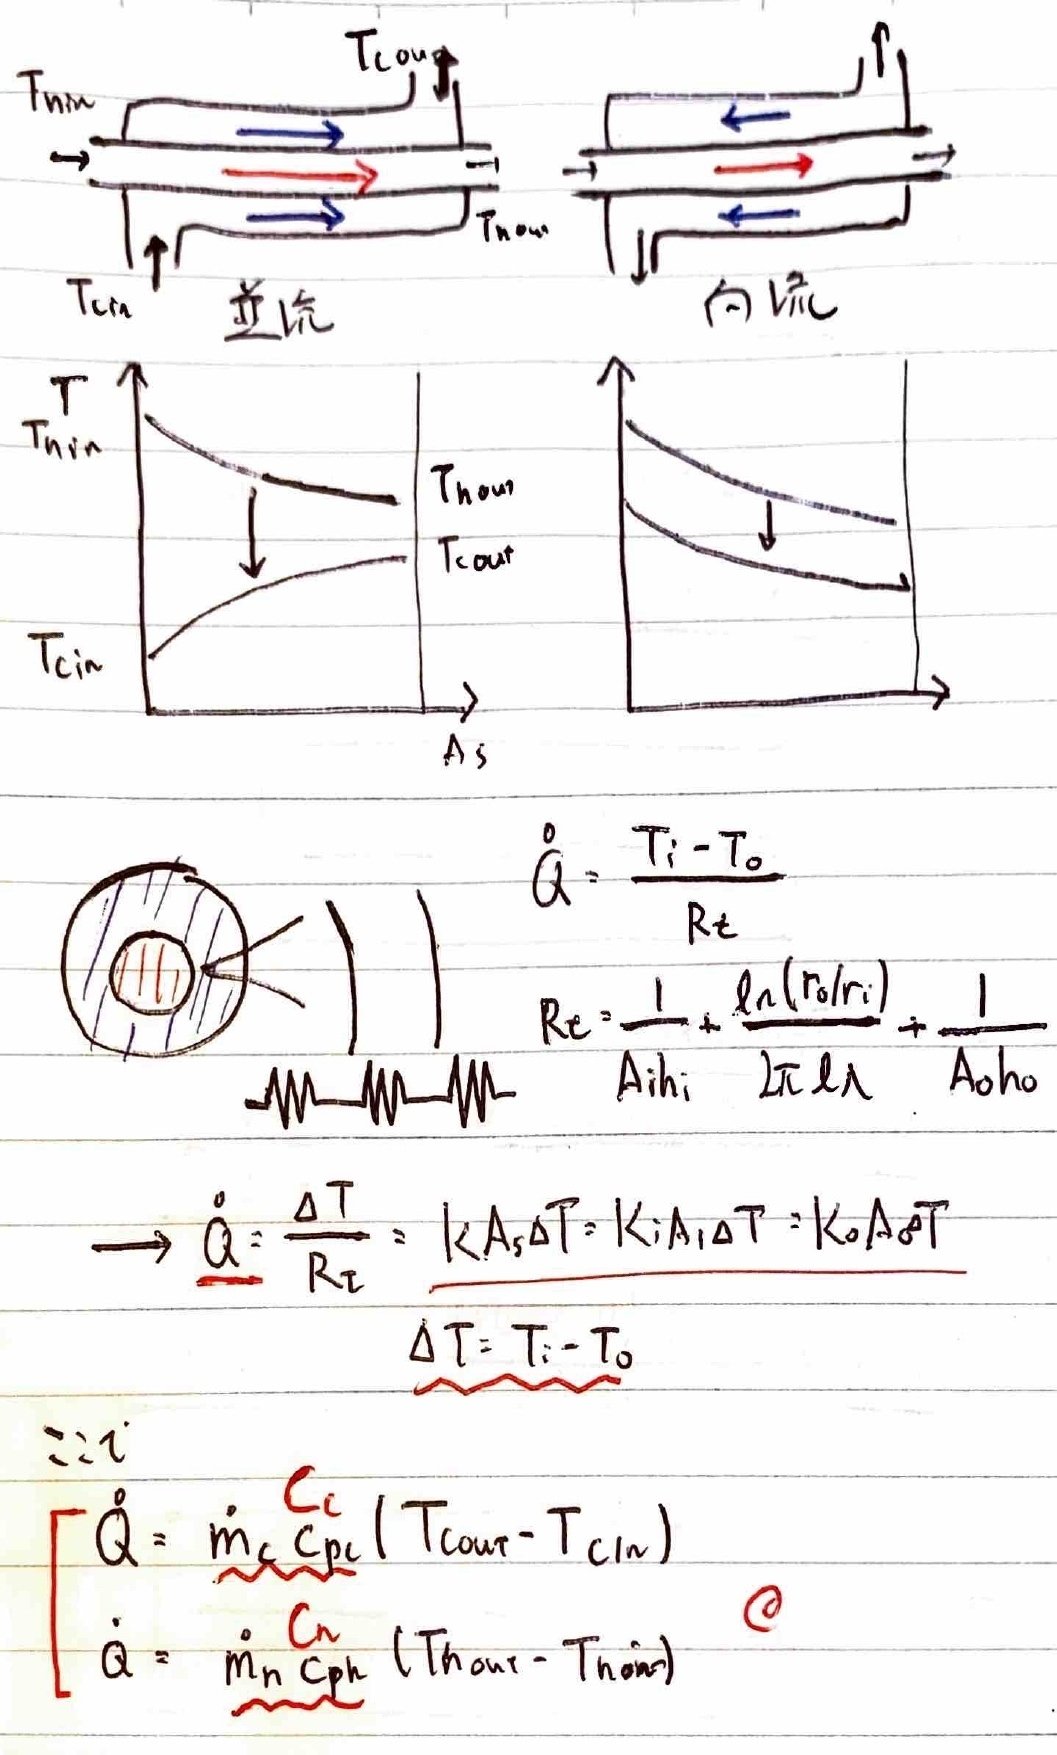 Tcout
Thin
Thout
Tcin
並流
向流
T
Thin
Thout
Tcout
Tcin
As
Q̇ = (Ti - To) / Rt
Rt = 1 / Aihi + ln(ro/ri) / 2πlλ + 1 / Aoho
→ Q̇ = ΔT / Rt = KAsΔT = KiAiΔT = KoAoΔT
ΔT = Ti - To
ここで
Cc
Q̇ = ṁc Cpc (Tcout - Tcin)
Ch
Q̇ = ṁh Cph (Thout - Thin)
@